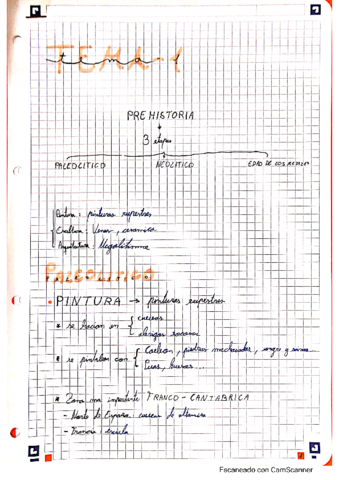 TEMA-1
tema
PREHISTORIA
3 etapas
PALEOLITICO NEOLITICO EDAD DE LOS METALES
Pintura: pinturas rupestres
Escultura: Venus, ceramica
Arquitectura: Megalitismo
PALEOLITICO
PINTURA → pinturas rupestres
* se hacian en { cuevas
abrigos rocosos
* se pintaban con { Carbon, piedras machacadas, sangre y
huevos...
* Zona mas importante FRANCO-CANTABRICA
- Norte de España: cuevas de altamira
- Francia:
Escaneado con CamScanner